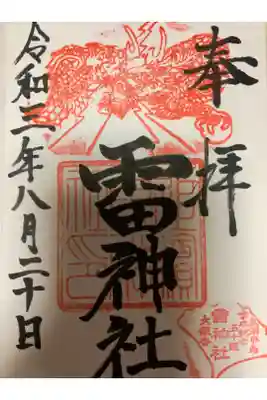 奉拝
雷神社
令和三年八月二十日
雷神社